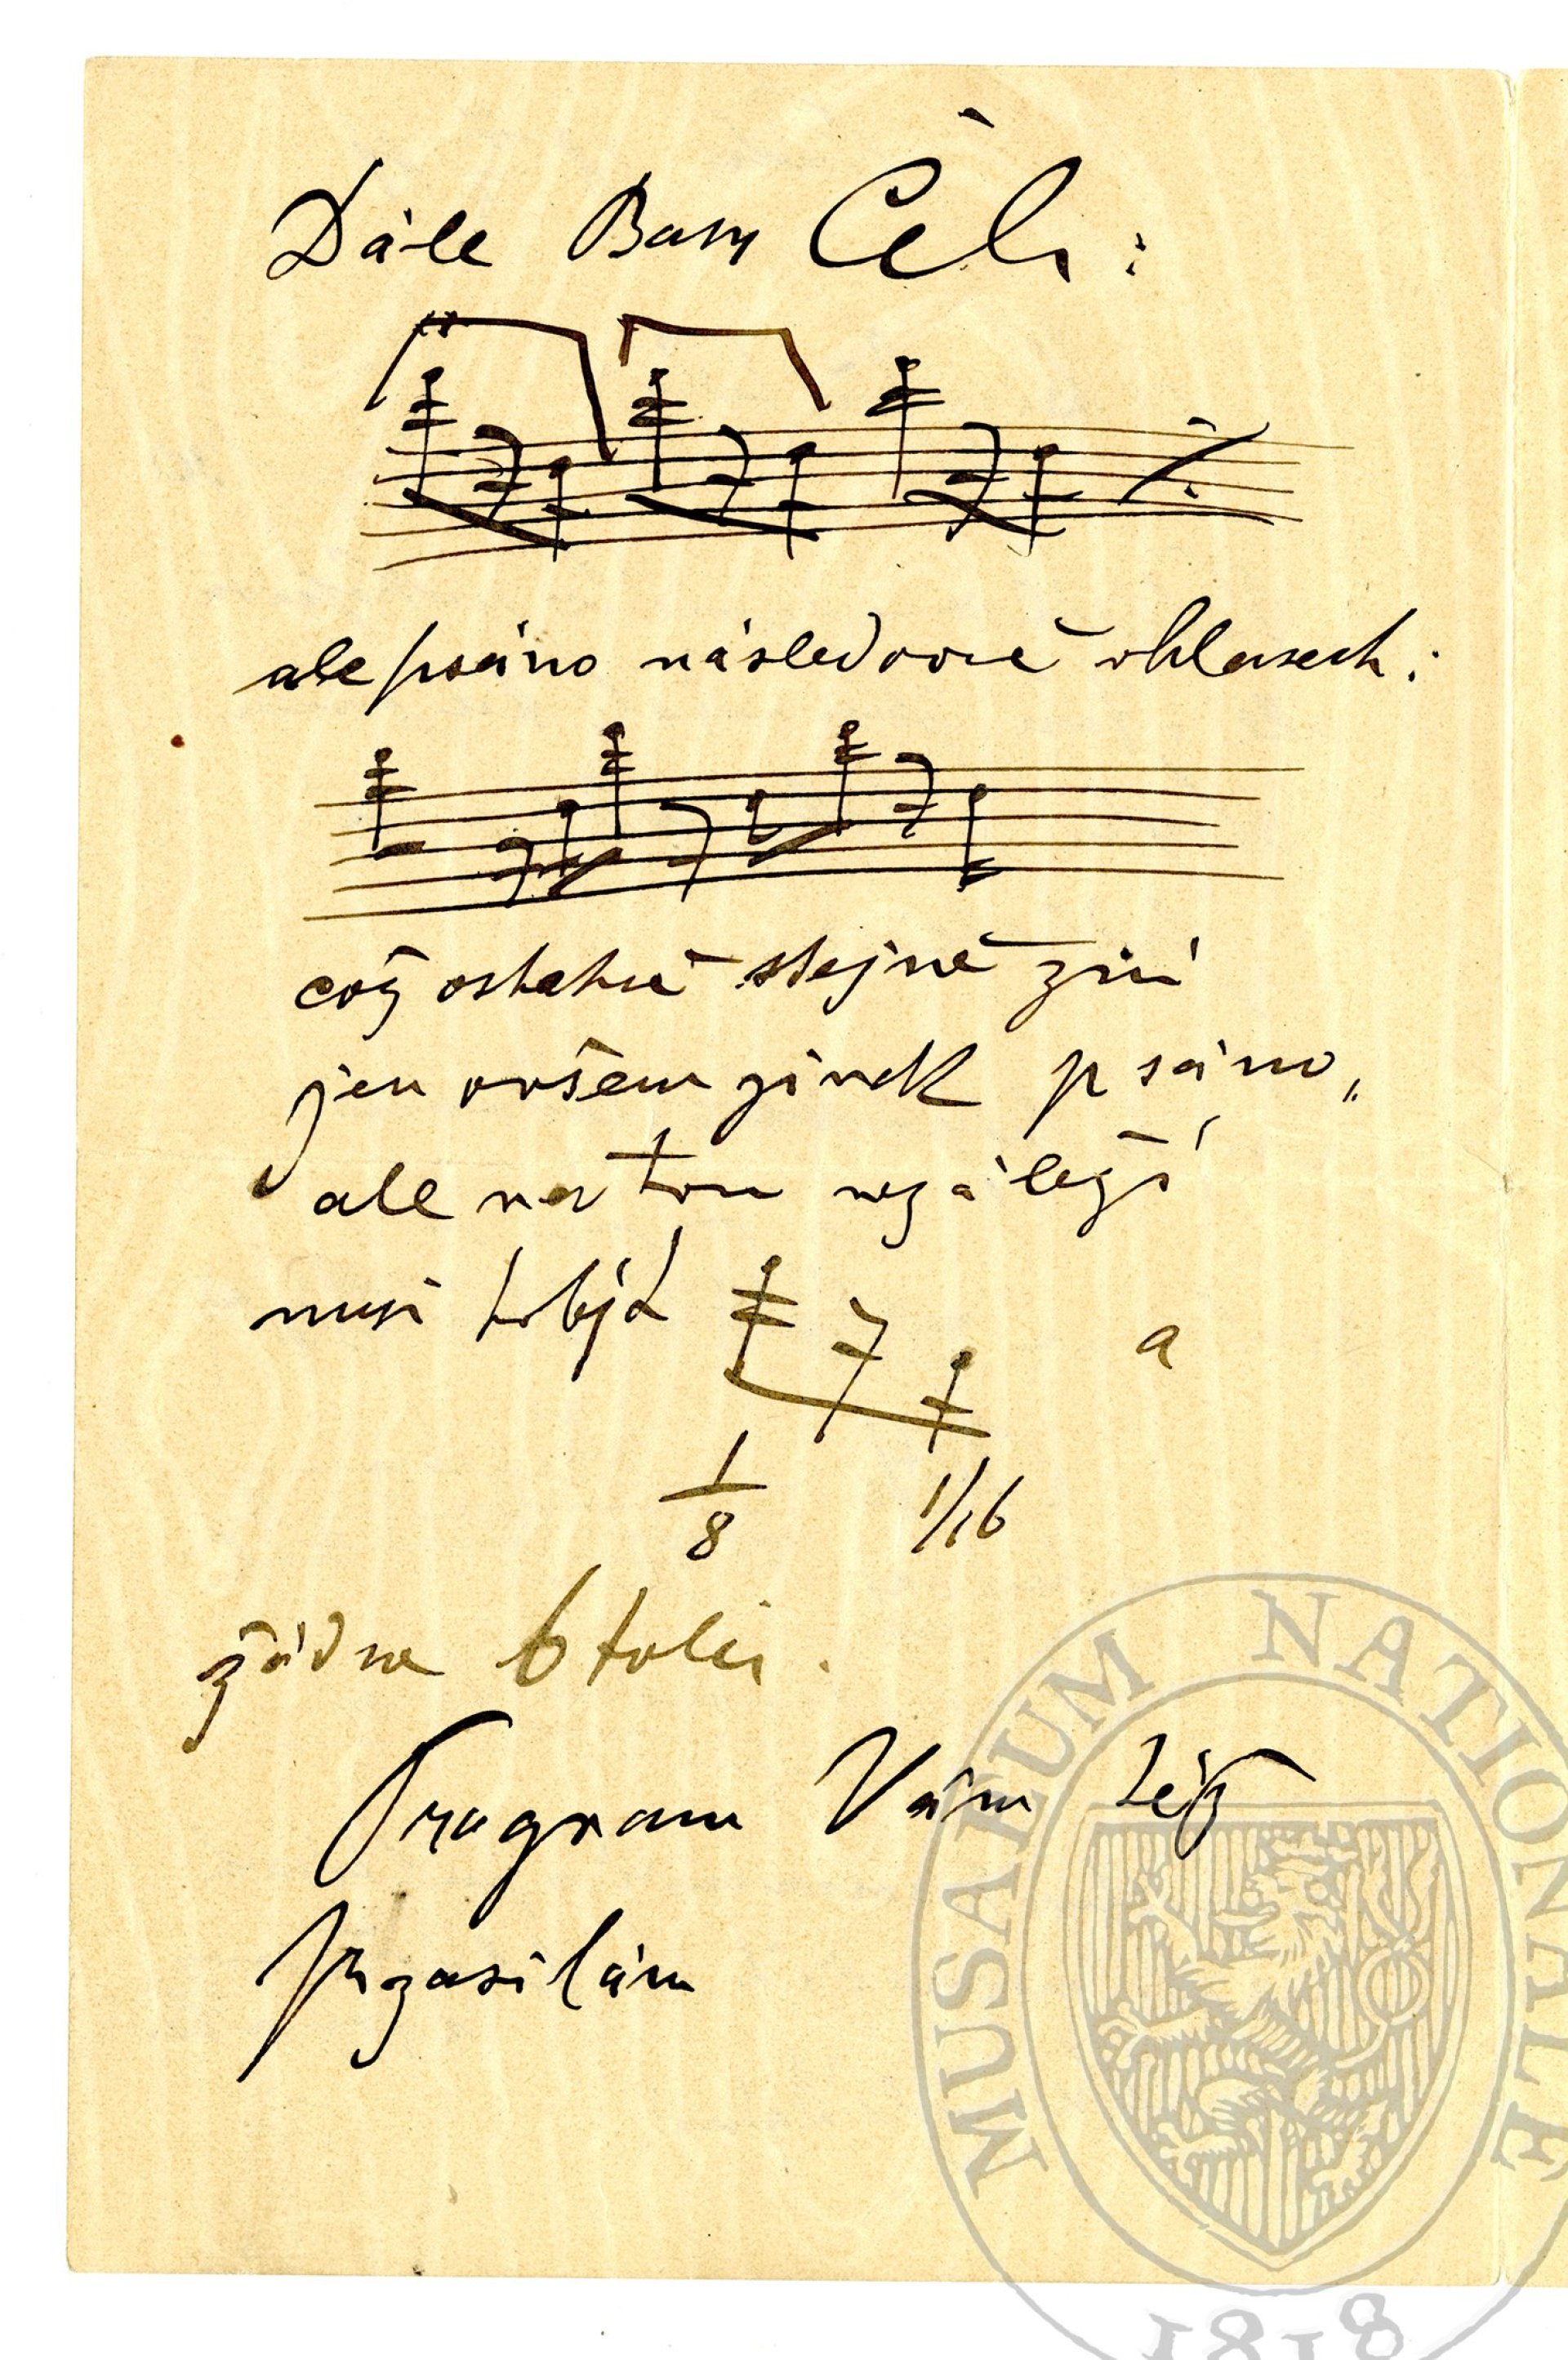 Dále Basy Čeli:
ale psáno následovně v hlasech:
což ostatně stejně zní
jen ovšem jinak psáno,,
ale na tom nezáleží
musí to být a
1/8 1/16
žádné 6 tolei.
Program Vám též
přizasílám
MUSAEUM NATIONALE
1818